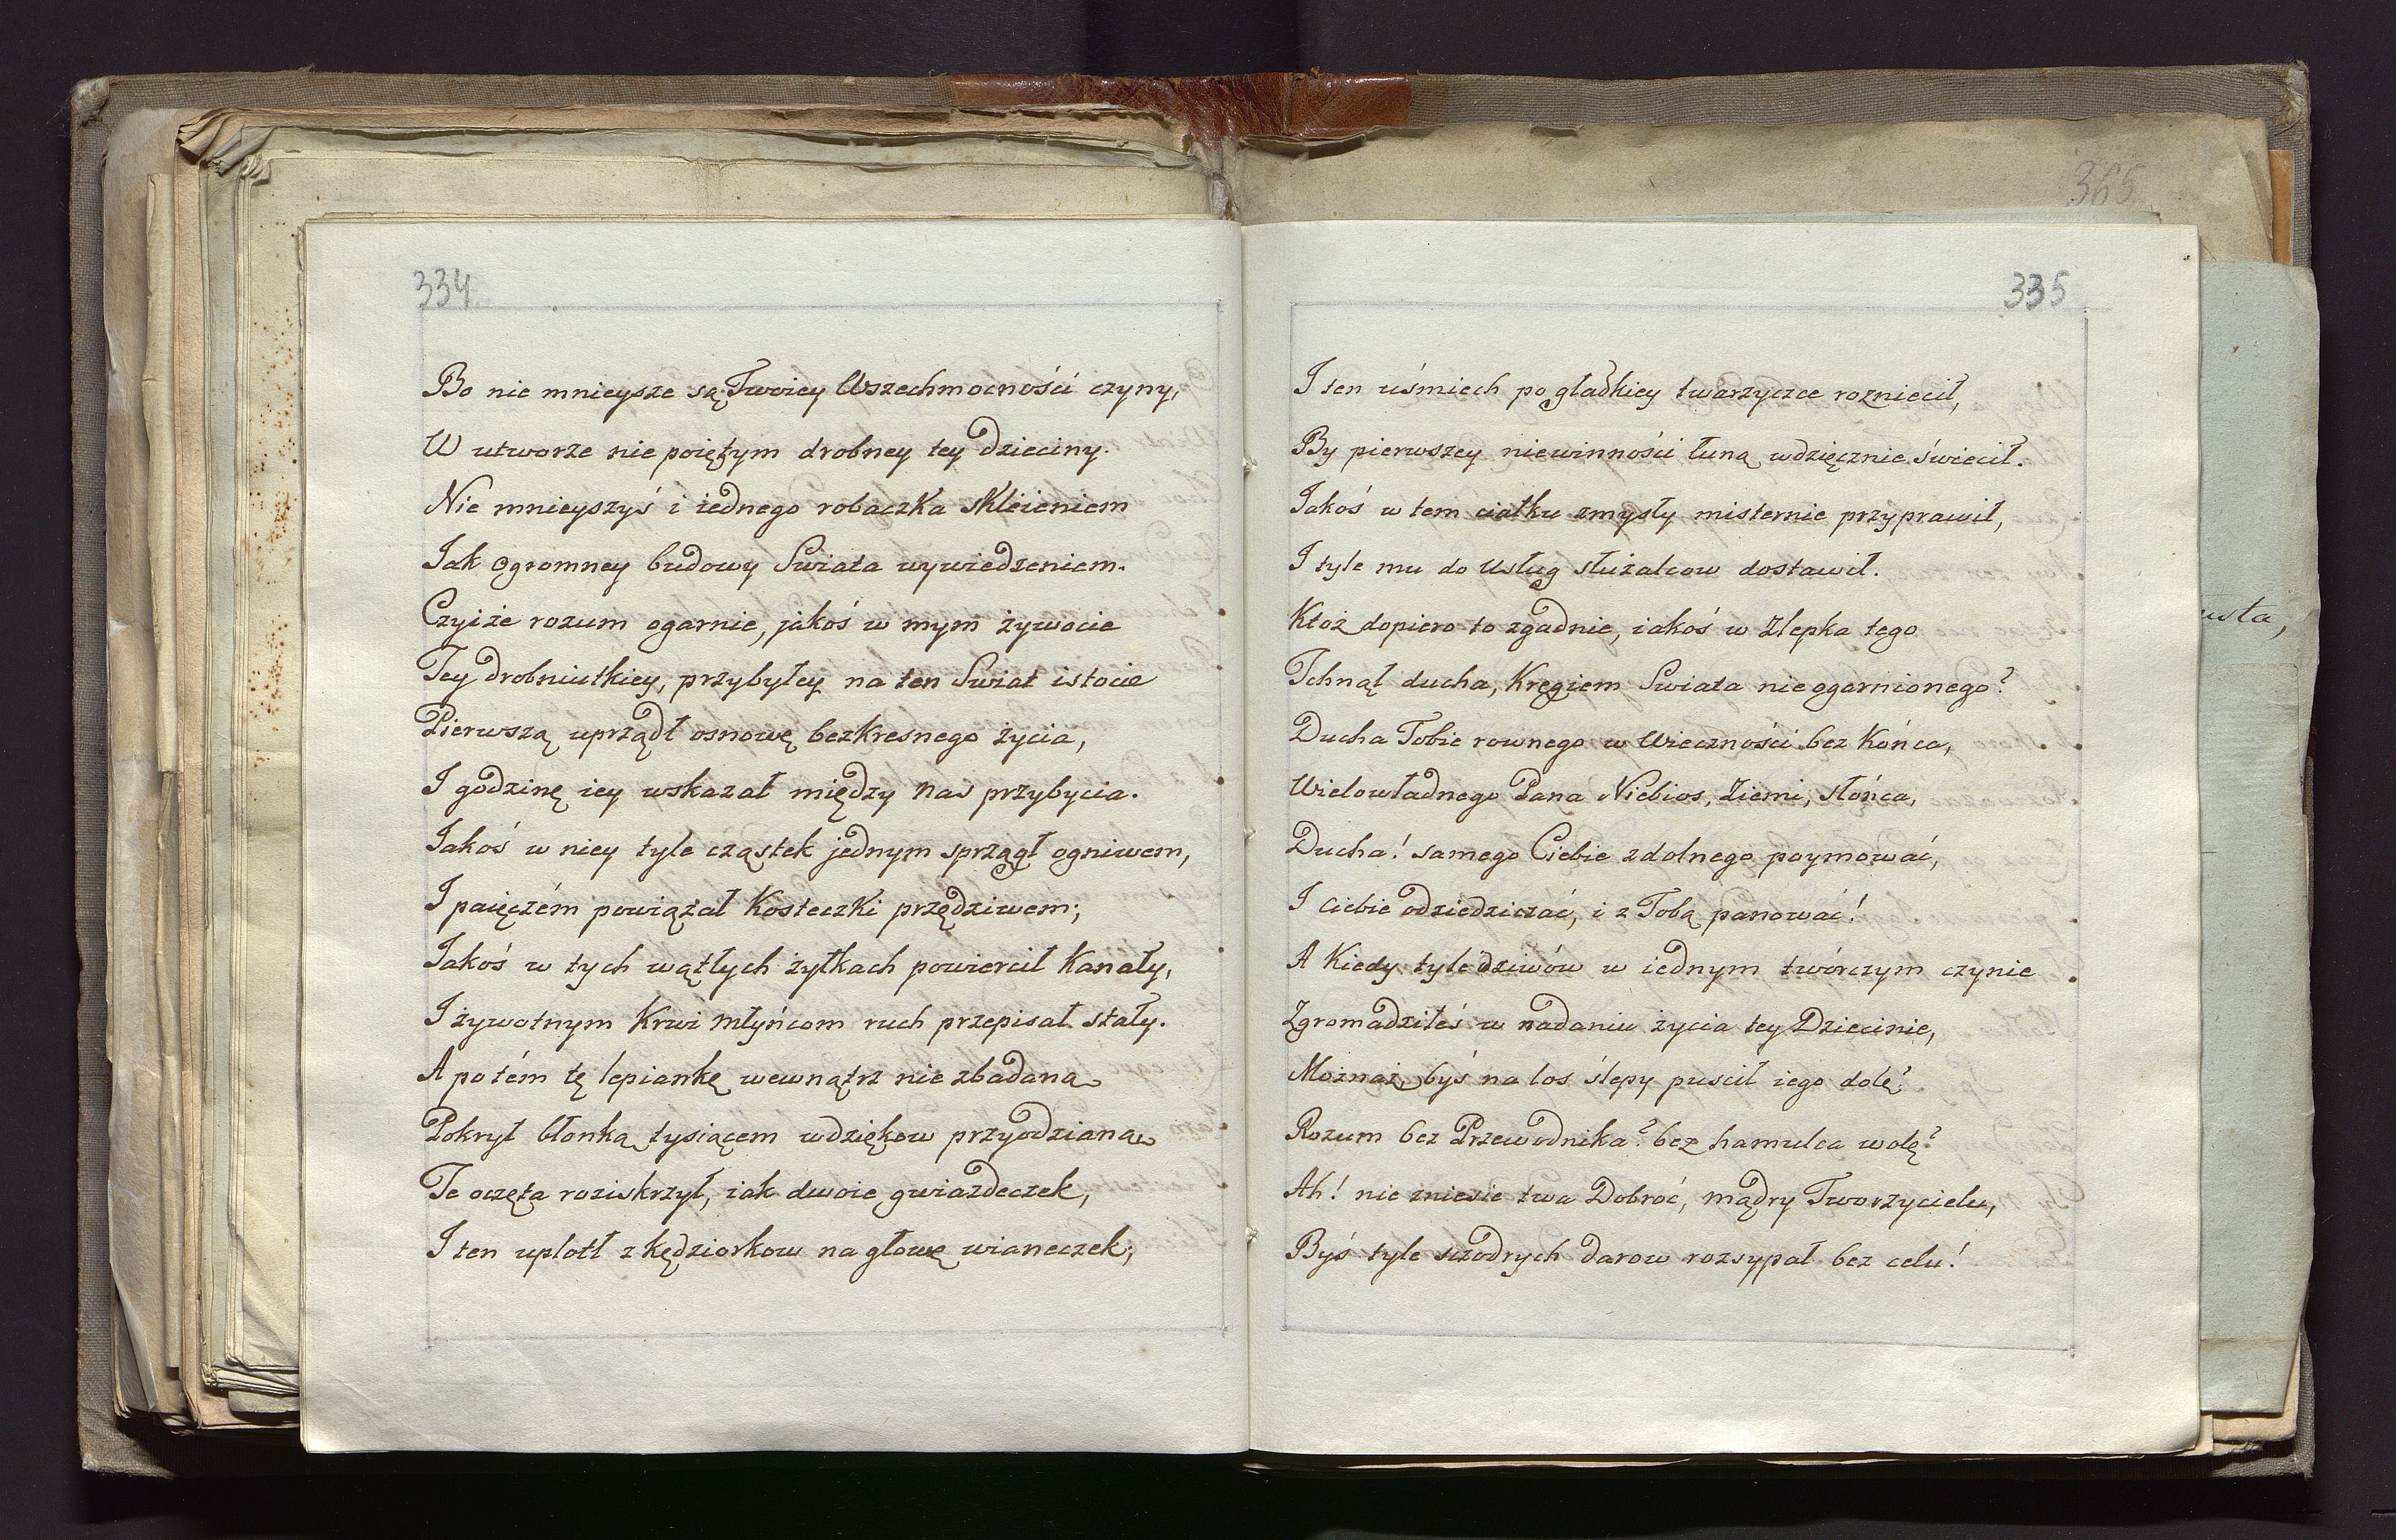 334
Bo nie mnieysze są Twoiey Wszechmocności czyny,
W utworze nie poiętym drobney tey dzieciny.
Nie mnieyszyś i iednego robaczka skleieniem
Jak ogromney budowy Swiata wywiedzeniem.
Czyiże rozum ogarnie, jakoś w mym żywocie
Tey drobniutkiey, przybyłey na ten Swiat istocie
Pierwszą uprządł osnowę bezkresnego życia,
I godzinę iey wskazał między nas przybycia.
Jakoś w niey tyle cząstek jednym sprzągł ogniwem,
I paięczém powiązał kosteczki przędziwem;
Jakoś w tych wątłych żyłkach powiercił kanały,
I żywotnym krwi młyńcom ruch przepisał stały.
A potém tę lepiankę wewnątrz nie zbadaną
Pokrył błonką tysiącem wdziękow przyodzianą
Te oczęta roziskrzył, iak dwoie gwiazdeczek,
I ten uplotł z kędziorkow na głowę wianeczek;
365
335
I ten uśmiech po gładkiey twarzyczce rozniecił,
By pierwszey niewinności łuną wdzięcznie świecił.
Jakoś w tem ciałku zmysły misternie przyprawił,
I tyle mu do usług służalcow dostawił.
Ktoż dopiero to zgadnie, iakoś w zlepka tego
Tchnął ducha, kręgiem Swiata nieogarnionego?
Ducha Tobie rownego w Wieczności bez końca,
Wielowładnego Pana Niebios, Ziemi, słońca,
Ducha! samego Ciebie zdolnego poymować,
I ciebie odziedziczać, i z Tobą panować!
A kiedy tyle dziwów w iednym twórczym czynie
Zgromadziłeś w nadaniu życia tey Dziecinie,
Możnaż, byś na los ślepy puscił iego dolę?
Rozum bez Przewodnika? bez hamulca wolę?
Ah! nie zniesie twa Dobroć, mądry Tworzycielu,
Byś tyle szczodrych darow rozsypał bez celu!
usta,